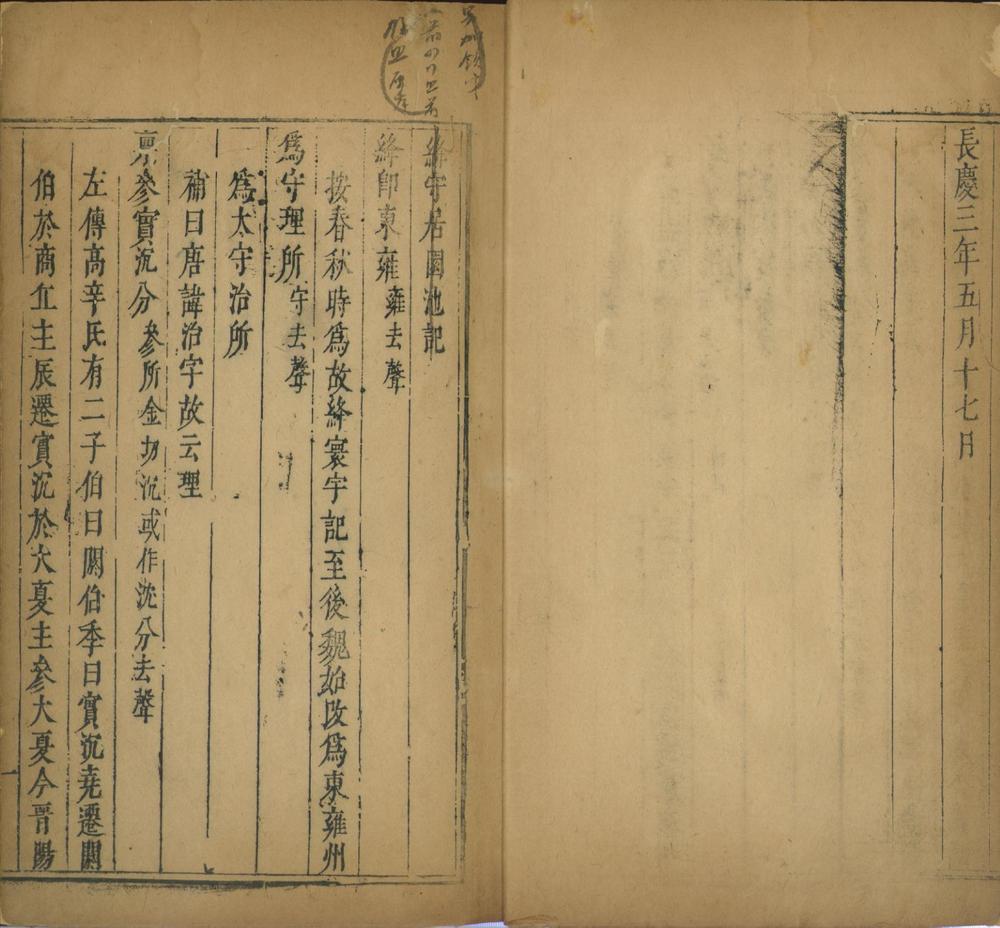 長慶三年五月十七日
絳守居園池記
絳即東雍雍去聲
按春秋時爲故絳寰宇記至後魏始改爲東雍州
爲守理所守去聲
爲太守治所
補曰唐諱治字故云理
稟參實沉分參所金切沉或作沈分去聲
左傳高辛氏有二子伯曰閼伯季曰實沉堯遷閼
伯於商丘主辰遷實沉於大夏主參大夏今晋陽